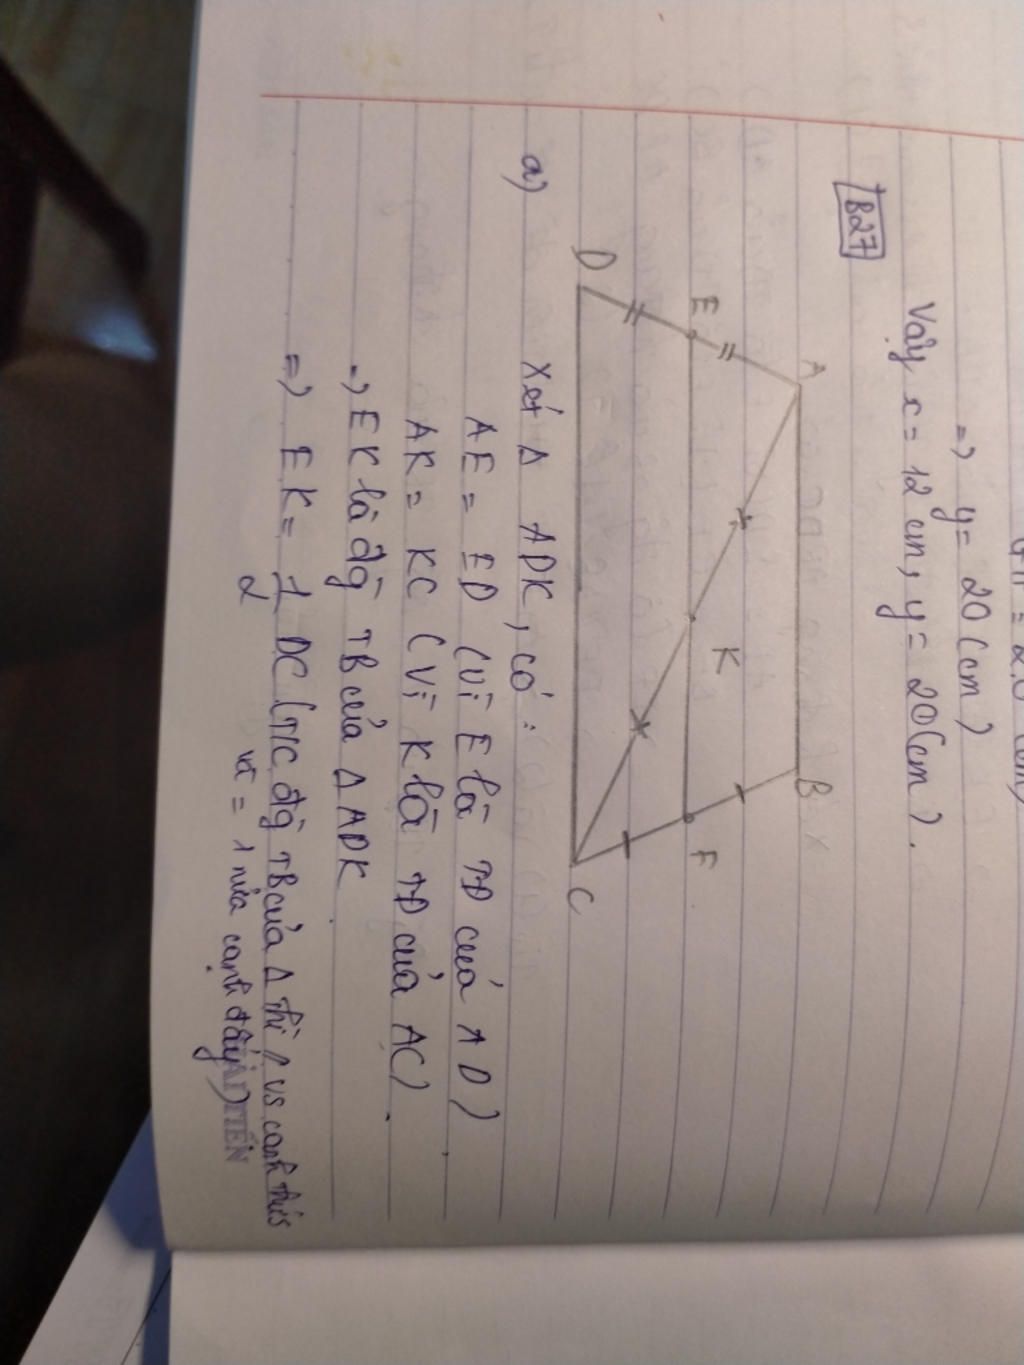 => y = 20 (cm)
Vậy x = 12 cm, y = 20 (cm).
B27
A B
E K F
D C
a) Xét Δ ADK, có:
AE = ED (Vì E là TĐ của AD)
AK = KC (Vì K là TĐ của AC).
=> EK là đg TB của Δ ADK
=> EK = 1/2 DC (T/C đg TB của Δ thì // vs cạnh thứ 3
và = 1 nửa cạnh đáy)
TIẾN